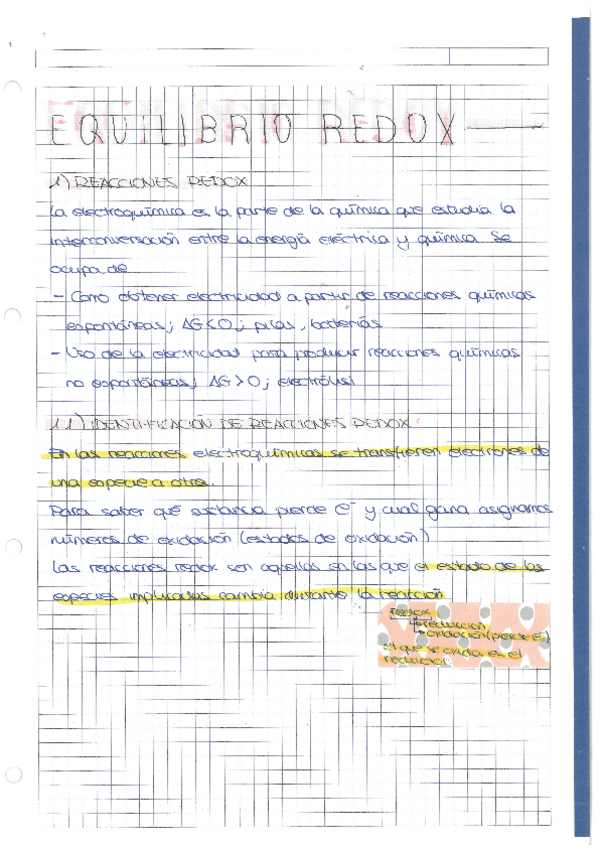 EQUILIBRIO REDOX
1) REACCIONES REDOX
La electroquímica es la parte de la química que estudia la
interconversión entre la energía eléctrica y química. Se
ocupa de
- Como obtener electricidad a partir de reacciones químicas
espontáneas; ΔG<0; pilas, baterías
- Uso de la electricidad para producir reacciones químicas
no espontáneas; ΔG>0; electrólisi
1.1) IDENTIFICACIÓN DE REACCIONES REDOX
En las reacciones electroquímicas se transfieren electrones de
una especie a otra.
Para saber qué sustancia pierde e⁻ y cual gana asignamos
números de oxidación (estados de oxidación)
Las reacciones redox son aquellas en las que el estado de las
especies implicadas cambia durante la reacción
redox
reducción
oxidación (pierde e⁻)
el que se oxida es el
reductor